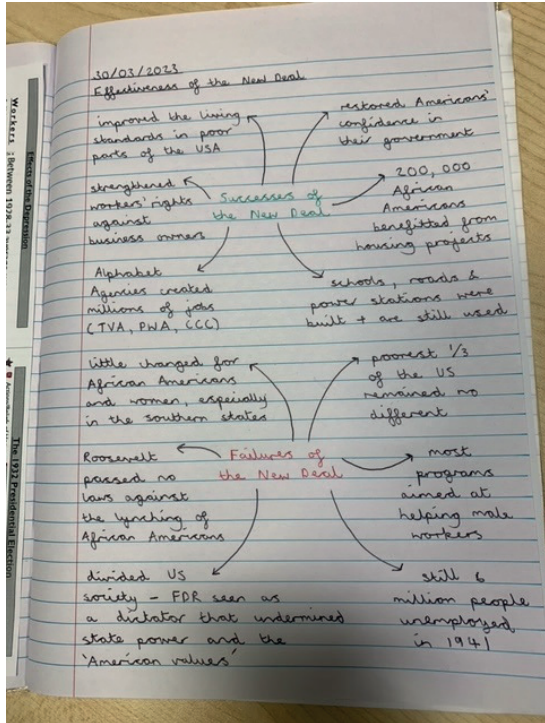 30/03/2023
Effectiveness of the New Deal
improved the living
standards in poor
parts of the USA
restored Americans'
confidence in
their government
strengthened
workers' rights
against
business owners
Successes of
the New Deal
200,000
African
Americans
benefitted from
housing projects
Alphabet
Agencies created
millions of jobs
(TVA, PWA, CCC)
schools, roads &
power stations were
built + are still used
little changed for
African Americans
and women, especially
in the southern states
poorest 1/3
of the US
remained no
different
Roosevelt
passed no
laws against
the lynching of
African Americans
Failures of
the New Deal
most
programs
aimed at
helping male
workers
divided US
society – FDR seen as
a dictator that undermined
state power and the
'American values'
still 6
million people
unemployed
in 1941
Effects of the Depression
Workers : Between 1928-33
The 1932 Presidential Election